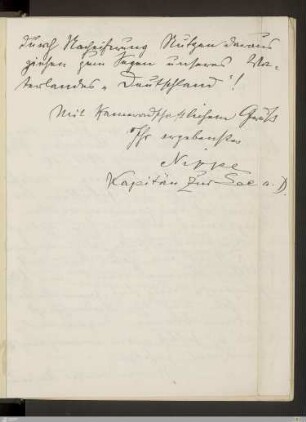 durch Nacheiferung Nutzen daraus
ziehen zum Segen unseres Va-
terlandes „Deutschland“!
Mit kameradschaftlichem Gruß
Ihr ergebenster
Nippe
Kapitän zur See a. D.